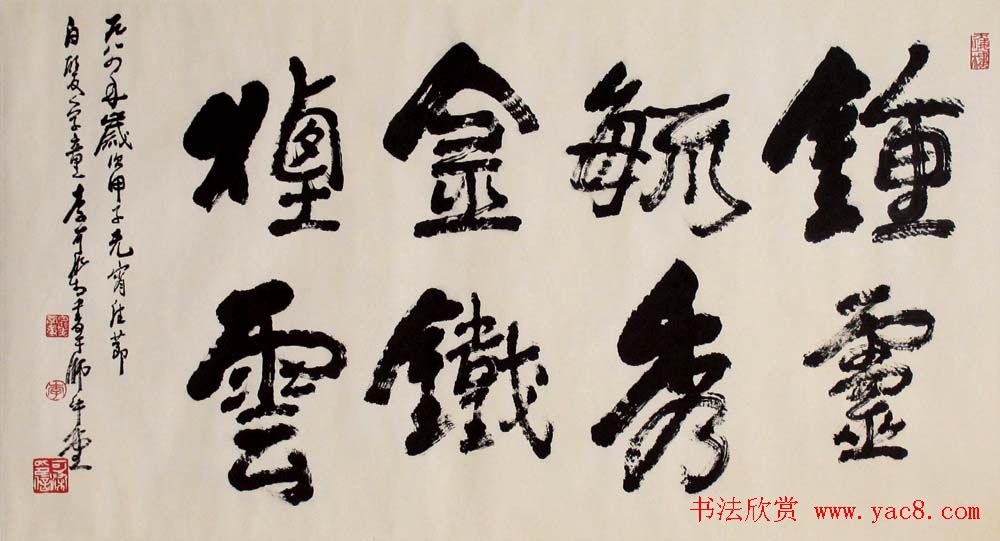 鍾靈
毓秀
金鐵
煙雲
一九八四年歲次甲子元宵佳節
白髮學童李可染書于師牛堂
李
书法欣赏 www.yac8.com